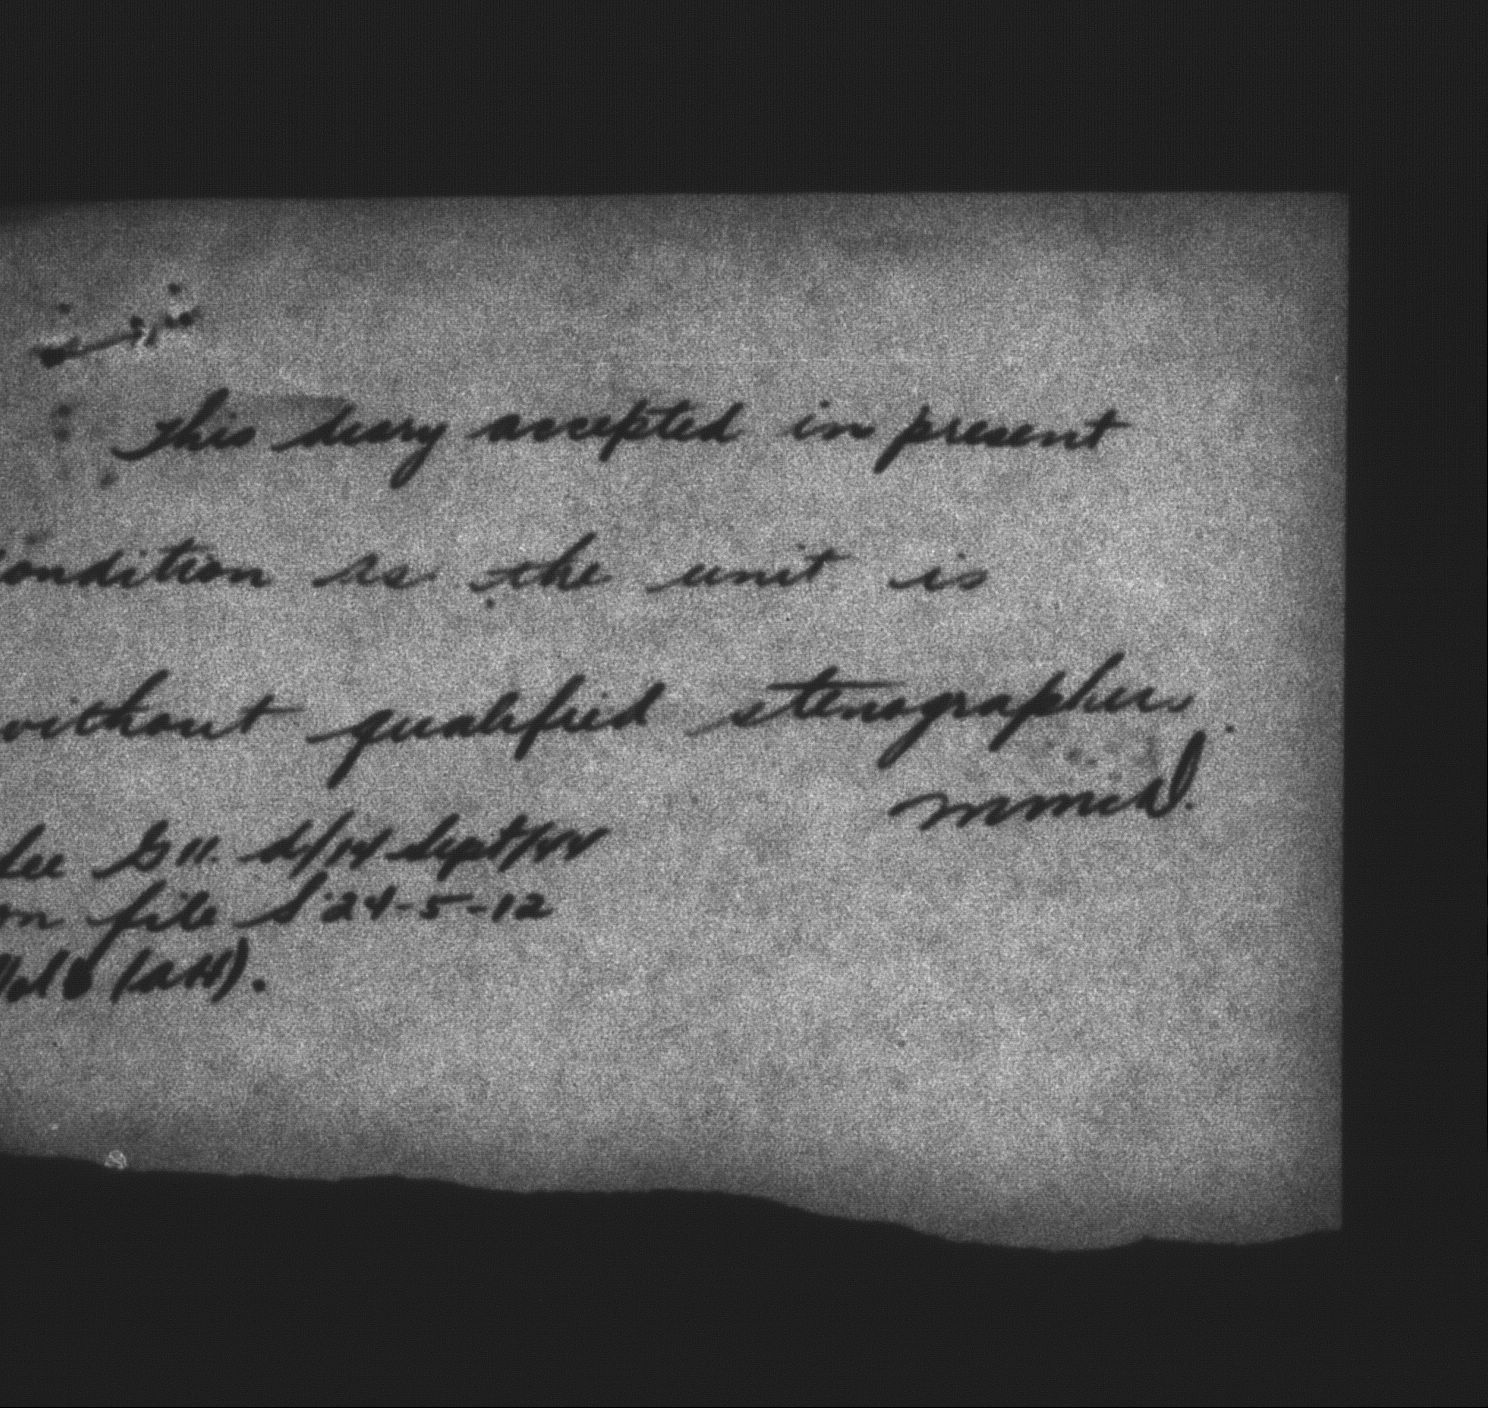 This diary accepted in present
condition as the unit is
without qualified stenographers.
See G 11. d/14 Sept/44
on file S 24-5-12
Vol 6 (AH).